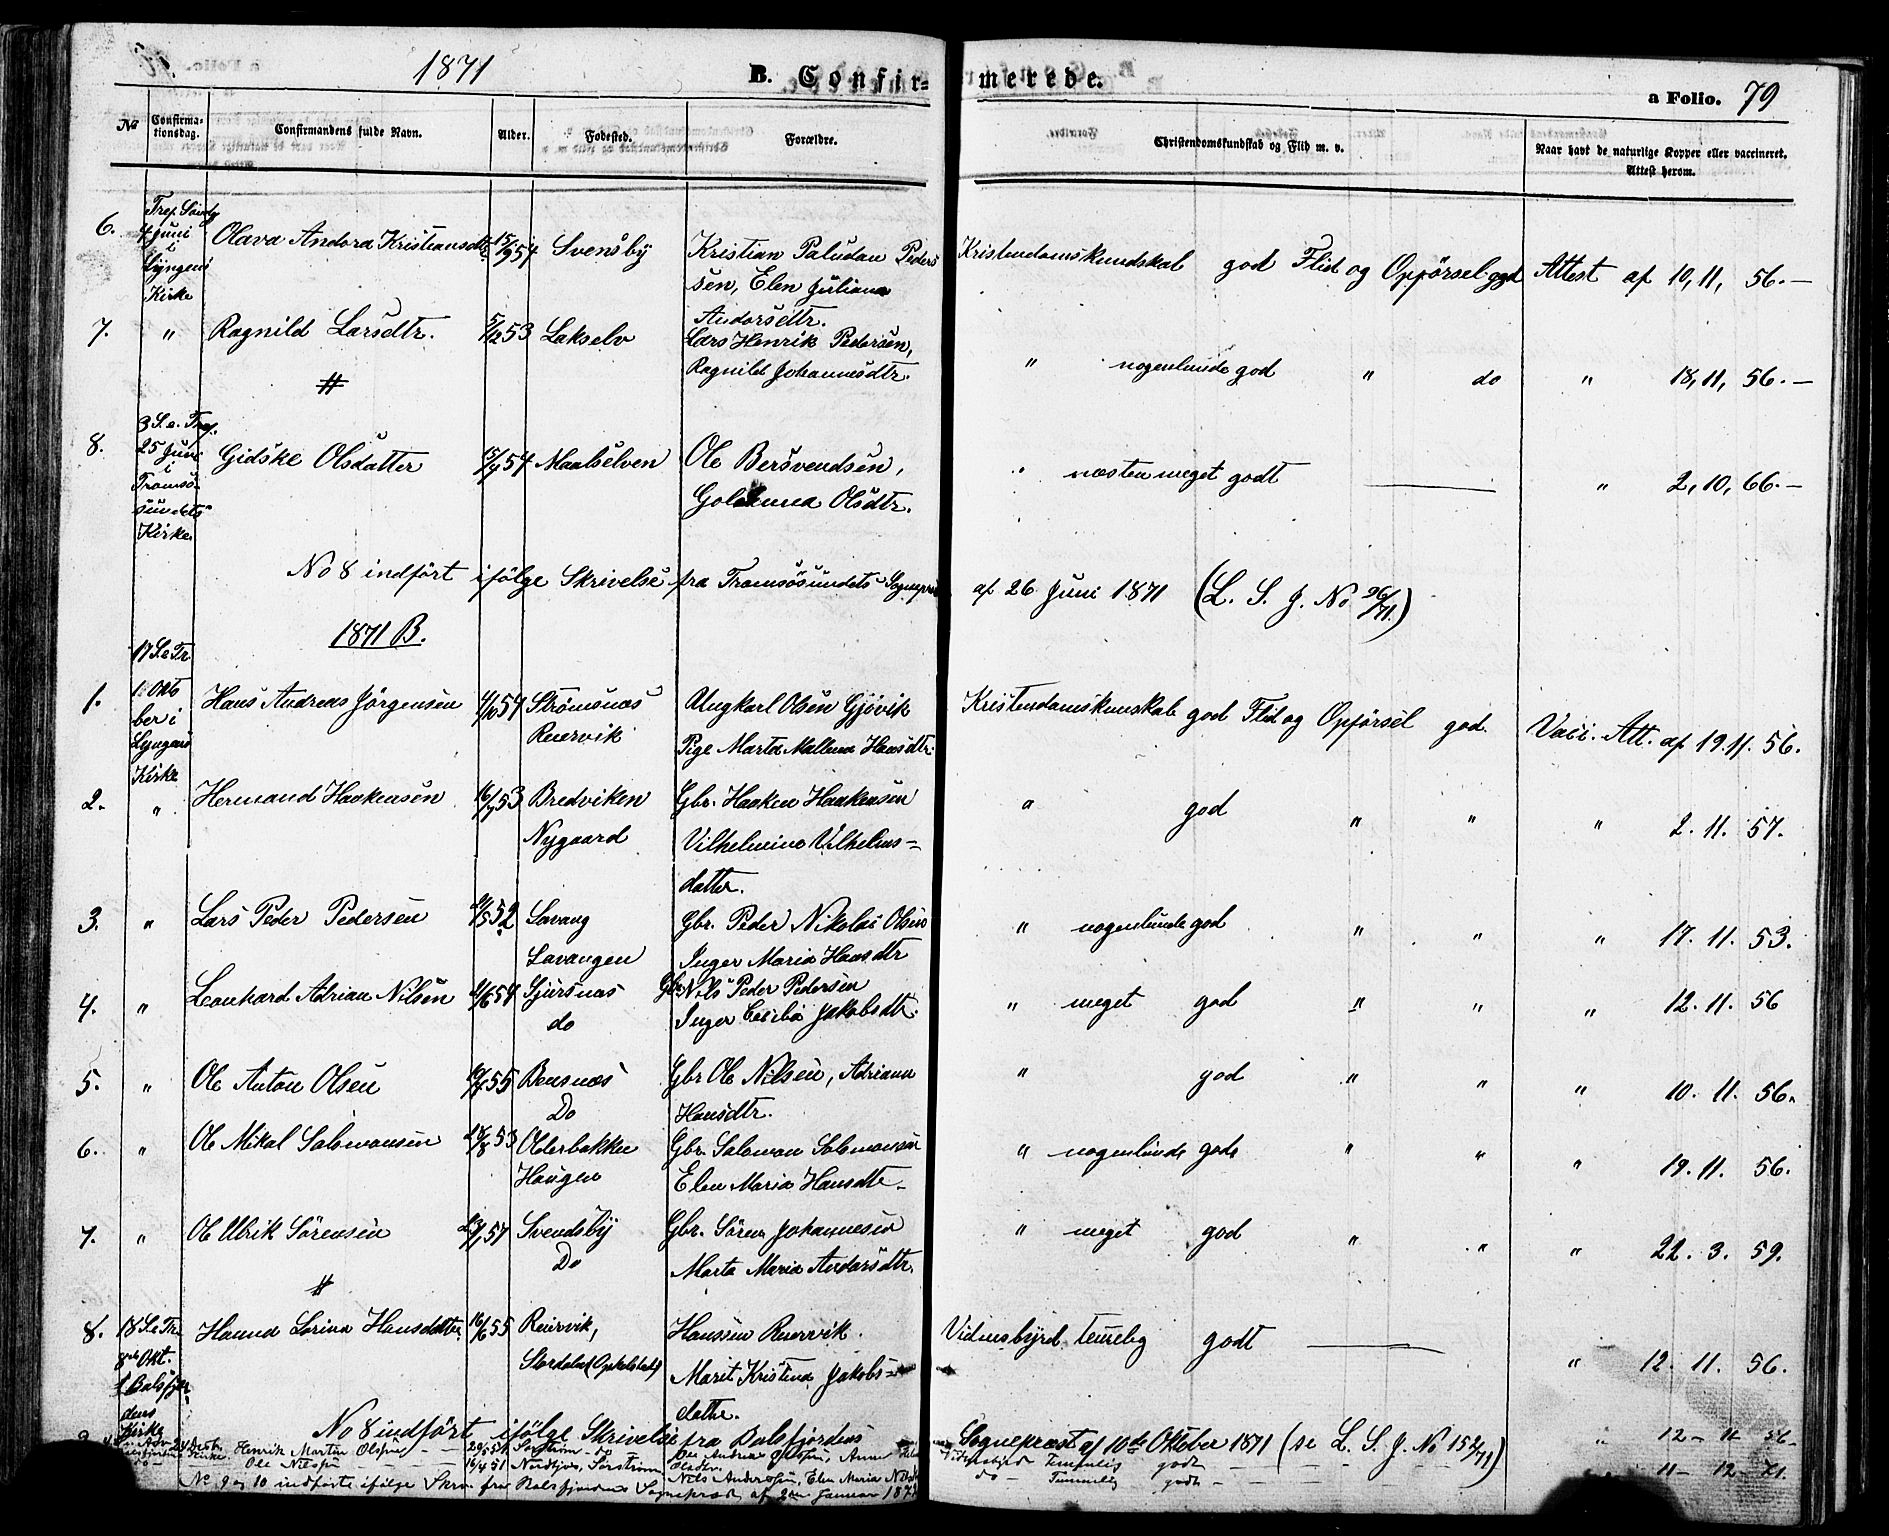 1871
B. Confir=
merede.
a Folio. 79
No
Confirma-
tionsdag.
Confirmandens fulde Navn.
Alder.
Fødested.
Forældre.
Christendomskundskab og Flid m. v.
Naar havt de naturlige Kopper eller vaccineret.
Attest herom.
6.
4 Juni
i
Lyngens
Kirke
Olava Andora Kristiansdtr.
15/9 54
Svensby
Kristian Paludan Peder-
sen, Elen Juliana
Andorsdtr.
Kristendomskundskab god Flid og Opførsel god
Attest af 10, 11, 56.—
7. " Ragnild Larsdtr.
5/12 53
Lakselv
Lars Henrik Pedersen,
Ragnild Johannesdtr.
" nogenlunde god " do
" 18, 11, 56.—
#
8.
3 S. e. Tref.
25 Juni
i
Tromsø-
sundets
Kirke
Gidske Olsdatter
54
Maalselven
Ole Bersvendsen,
Olsdtr.
" næsten meget godt ———
" 2, 10, 66.—
No 8 indført ifølge Skrivelse fra Tromsøsundets Sognepr.
af 26 Juni 1871 (L. S. J. No 96/71.)
1871 B.
17 S. e Tr.
1.
1 Okto
ber i
Lyngens
Kirke
Hans Andreas Jørgensen
4/10 54
Strømsnæs
Reiervik
Ungkarl Olsen Gjøvik
Pige Marta Hansdtr.
Kristendomskunskab god Flid og Opførsel god.
Vacc. Att. af 19. 11. 56.
2. " Hermand Haakensen
16/7 53
Bredviken
Nygaard
Gbr. Haaken Haakensen
Vilhelmine Vilhelms-
datter.
" god " "
" 2. 11. 57.
3. " Lars Peder Pedersen
52
Lavang
Lavangen
Gbr. Peder Nikolai Olsen
Inger Maria Hansdtr
" nogenlunde god " "
" 17. 11. 53.
4. " Leonhard Adrian Nilsen
54
Sjursnæs
do
Gbr. Nils Peder Pedersen
Inger Cecilia Jakobsdtr.
" meget god " "
" 12. 11. 56
5. " Ole Anton Olsen
55
Bensnæs
Do
Gbr Ole Nilsen, Adriana
Hansdtr.
" god " "
" 10. 11. 56.
6. " Ole Mikal Salomonsen
53
Olderbakken
Haugen
Gbr. Salomon Salomonsen
Elen Maria Hansdtr.
" nogenlunde gode " "
" 19. 11. 56.
7. " Ole Ulrik Sørensen
57
Svendsby
Do
Gbr. Søren Johannesen
Marta Maria Andorsdtr.
" meget god " "
" 22. 3. 59.
#
8.
18 S. e Tr.
8de Okt.
i Balsfjor-
dens
Kirke
Hanna Lorina Hansdatter
16/6 55
Reiervik,
Stordalen (Opholdssted)
Hanssen Reiervik.
Marit Kristina Jakobs-
datter.
Vidensbyrd temmelig godt ———
" 12. 11. 56.
No 8 indført ifølge Skrivelse fra Balsfjordens
Sogneprest af 10de Oktober 1871 (se L. S. J. No 152/71)
Henrik Martin
Ole Nilsen
16/4 51
Sørstrøm
Nils Andersen, Elen Maria
Temmelig godt
do — Temmelig godt —
" 12 - 11 - 56 -
11 - 12 - 71.
No 9 og 10 indførte ifølge Skr. fra Balsfjordens Sogneprest af 2den Januar